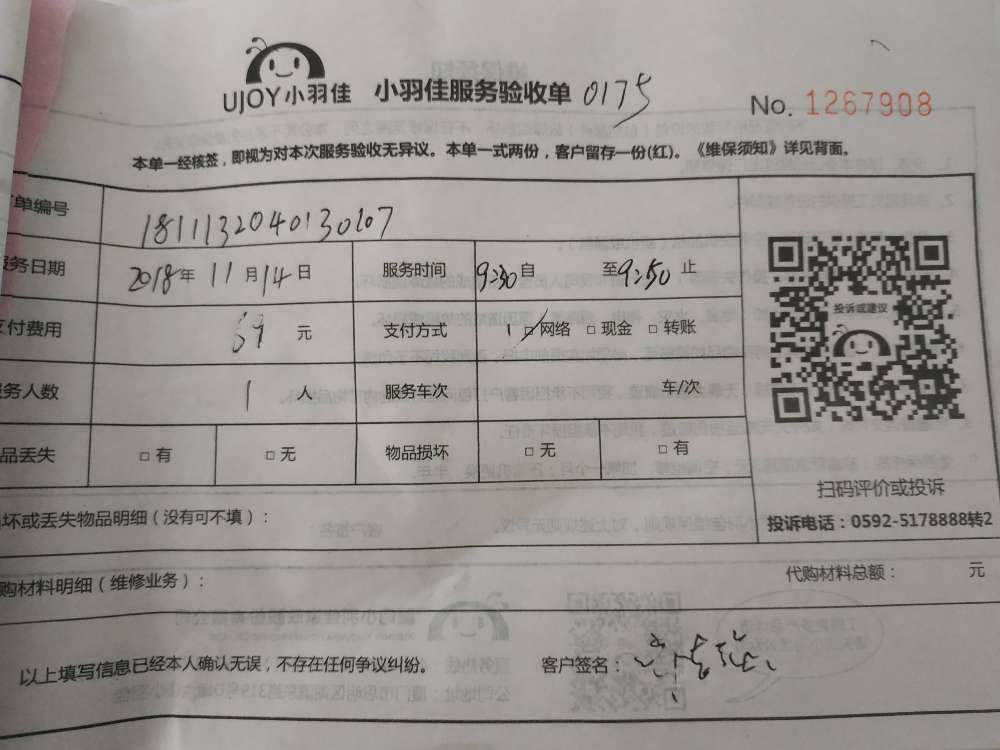 UJOY小羽佳 小羽佳服务验收单 0175 No. 1267908
本单一经核签，即视为对本次服务验收无异议。本单一式两份，客户留存一份(红)。《维保须知》详见背面。
单编号 1811132040130107
服务日期 2018年11月14日 服务时间 9:30自 至9:50止
支付费用 元 支付方式 □网络 □现金 □转账
服务人数 1 人 服务车次 车/次
品丢失 □有 □无 物品损坏 □无 □有
投诉或建议
扫码评价或投诉
投诉电话：0592-5178888转2
坏或丢失物品明细（没有可不填）：
购材料明细（维修业务）： 代购材料总额： 元
以上填写信息已经本人确认无误，不存在任何争议纠纷。 客户签名：